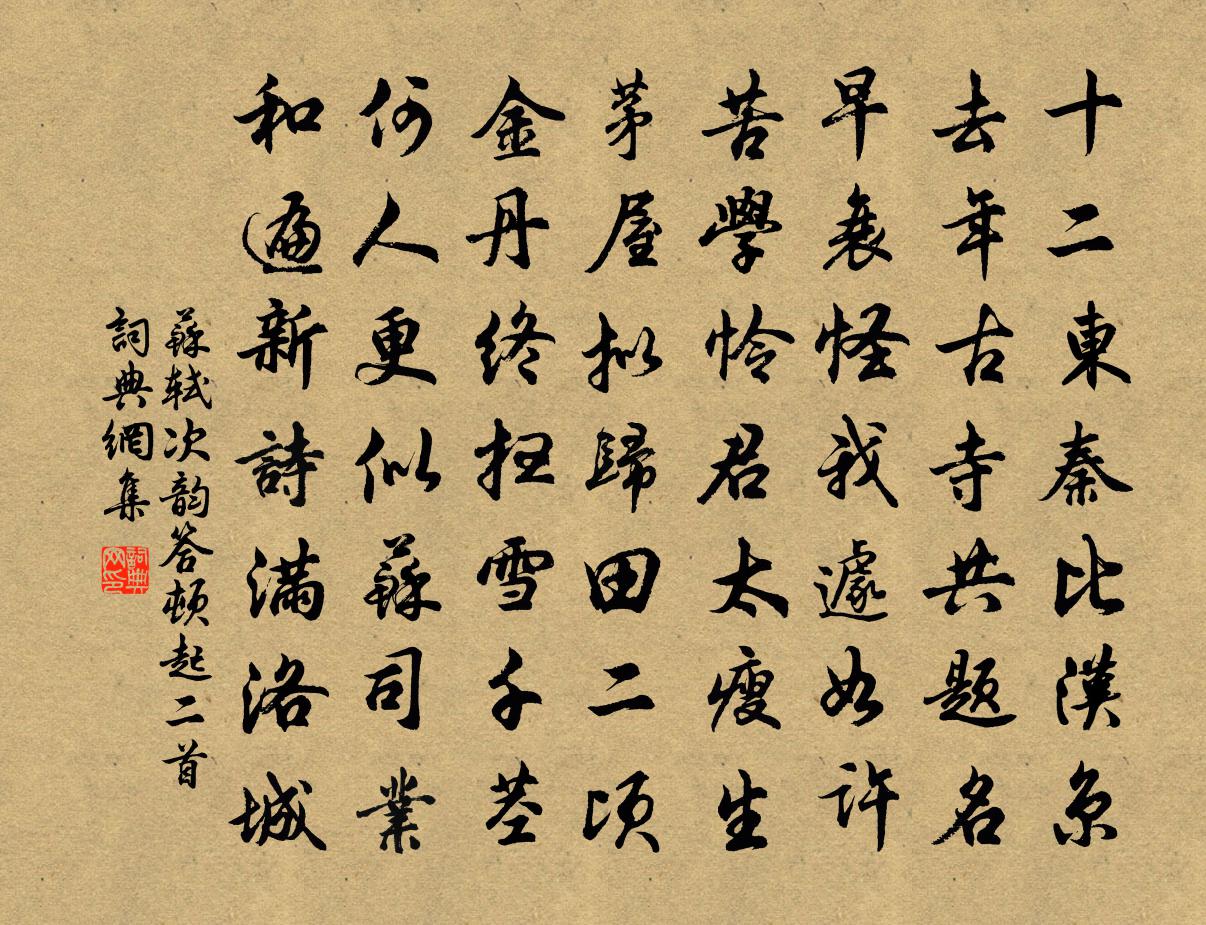 十二東秦比漢京
去年古寺共題名
早衰怪我遽如許
苦學憐君太瘦生
茅屋拟歸田二頃
金丹終掃雪千莖
何人更似蘇司業
和遍新詩滿洛城
蘇軾次韵答頓起二首
詞典網集
詞典网印